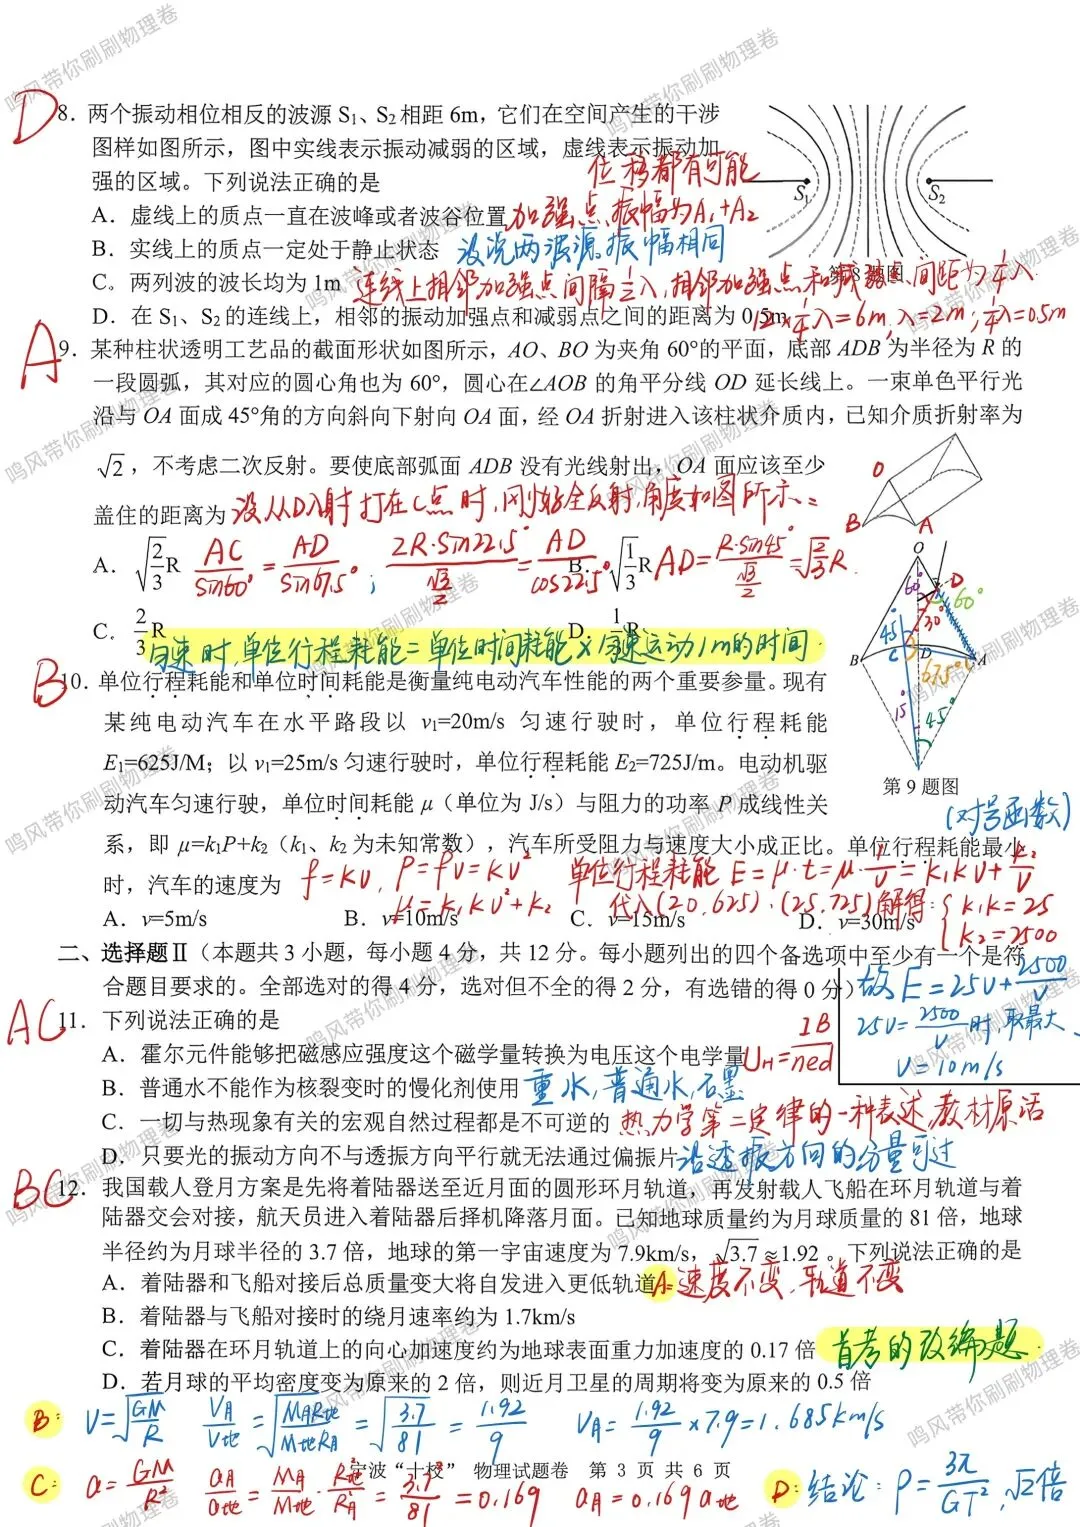 D
8. 两个振动相位相反的波源 S₁、S₂相距 6m，它们在空间产生的干涉
图样如图所示，图中实线表示振动减弱的区域，虚线表示振动加
强的区域。下列说法正确的是
位移都有可能
S₁ S₂
A．虚线上的质点一直在波峰或者波谷位置 加强点振幅为A₁+A₂
B．实线上的质点一定处于静止状态 没说两波源振幅相同
第 8 题图
C．两列波的波长均为 1m 连线上相邻加强点间隔½λ,相邻加强点和减弱点间距为¼λ
D．在 S₁、S₂的连线上，相邻的振动加强点和减弱点之间的距离为 0.5m
12×¼λ=6m,λ=2m;¼λ=0.5m
A
9. 某种柱状透明工艺品的截面形状如图所示，AO、BO 为夹角 60°的平面，底部 ADB 为半径为 R 的
一段圆弧，其对应的圆心角也为 60°，圆心在∠AOB 的角平分线 OD 延长线上。一束单色平行光
沿与 OA 面成 45°角的方向斜向下射向 OA 面，经 OA 折射进入该柱状介质内，已知介质折射率为
√2，不考虑二次反射。要使底部弧面 ADB 没有光线射出，OA 面应该至少
盖住的距离为 设从D入射打在C点时,刚好全反射,角度如图所示:
A．√(2/3)R AC/sin60°=AD/sin67.5°; 2R·sin22.5°/(√3/2)=AD/cos22.5° B．√(1/3)R AD=R·sin45°/(√3/2)=√(2/3)R.
C．2/3 R D．1/3 R
匀速时,单位行程耗能=单位时间耗能×匀速运动1m的时间.
O B A
O D 60° 60° 30° 45° B C D A 67.5° 15° 45°
第 9 题图
B
10. 单位行程耗能和单位时间耗能是衡量纯电动汽车性能的两个重要参量。现有
某纯电动汽车在水平路段以 v₁=20m/s 匀速行驶时，单位行程耗能
E₁=625J/M；以 v₁=25m/s 匀速行驶时，单位行程耗能 E₂=725J/m。电动机驱
动汽车匀速行驶，单位时间耗能 μ（单位为 J/s）与阻力的功率 P 成线性关
(对号函数)
系，即 μ=k₁P+k₂（k₁、k₂ 为未知常数），汽车所受阻力与速度大小成正比。单位行程耗能最小
时，汽车的速度为 f=kv, P=fv=kv² 单位行程耗能 E=μ·t=μ·1/v=k₁kv+k₂/v
μ=k₁kv²+k₂ 代入(20,625),(25,725)解得:{k₁k=25 k₂=2500
A．v=5m/s B．v=10m/s C．v=15m/s D．v=30m/s
二、选择题Ⅱ（本题共 3 小题，每小题 4 分，共 12 分。每小题列出的四个备选项中至少有一个是符
合题目要求的。全部选对的得 4 分，选对但不全的得 2 分，有选错的得 0 分）
故E=25v+2500/v
25v=2500/v时,取最大
v=10m/s
AC
11. 下列说法正确的是
A．霍尔元件能够把磁感应强度这个磁学量转换为电压这个电学量 U_H=IB/ned
B．普通水不能作为核裂变时的慢化剂使用 重水,普通水,石墨
C．一切与热现象有关的宏观自然过程都是不可逆的 热力学第二定律的一种表述,教材原话
D．只要光的振动方向不与透振方向平行就无法通过偏振片 沿透振方向的分量可过
BC
12. 我国载人登月方案是先将着陆器送至近月面的圆形环月轨道，再发射载人飞船在环月轨道与着
陆器交会对接，航天员进入着陆器后择机降落月面。已知地球质量约为月球质量的 81 倍，地球
半径约为月球半径的 3.7 倍，地球的第一宇宙速度为 7.9km/s，√3.7≈1.92。下列说法正确的是
A．着陆器和飞船对接后总质量变大将自发进入更低轨道 A:速度不变,轨道不变
B．着陆器与飞船对接时的绕月速率约为 1.7km/s
C．着陆器在环月轨道上的向心加速度约为地球表面重力加速度的 0.17 倍 首考的改编题
D．若月球的平均密度变为原来的 2 倍，则近月卫星的周期将变为原来的 0.5 倍
B: v=√(GM/R) v_A/v_地=√(M_A R_地/M_地 R_A)=√(3.7/81)=1.92/9 v_A=1.92/9×7.9=1.685km/s
宁波“十校” 物理试题卷 第 3 页 共 6 页
C: a=GM/R² a_A/a_地=M_A/M_地·R_地²/R_A²=3.7²/81=0.169 a_A=0.169a_地 D:结论:ρ=3π/GT²,√2倍
鸣风带你刷刷物理卷